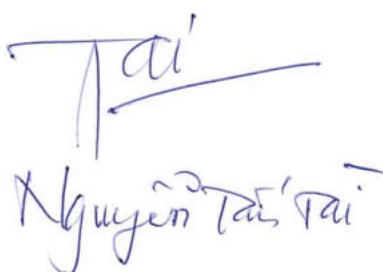 Tài
Nguyễn Tấn Tài